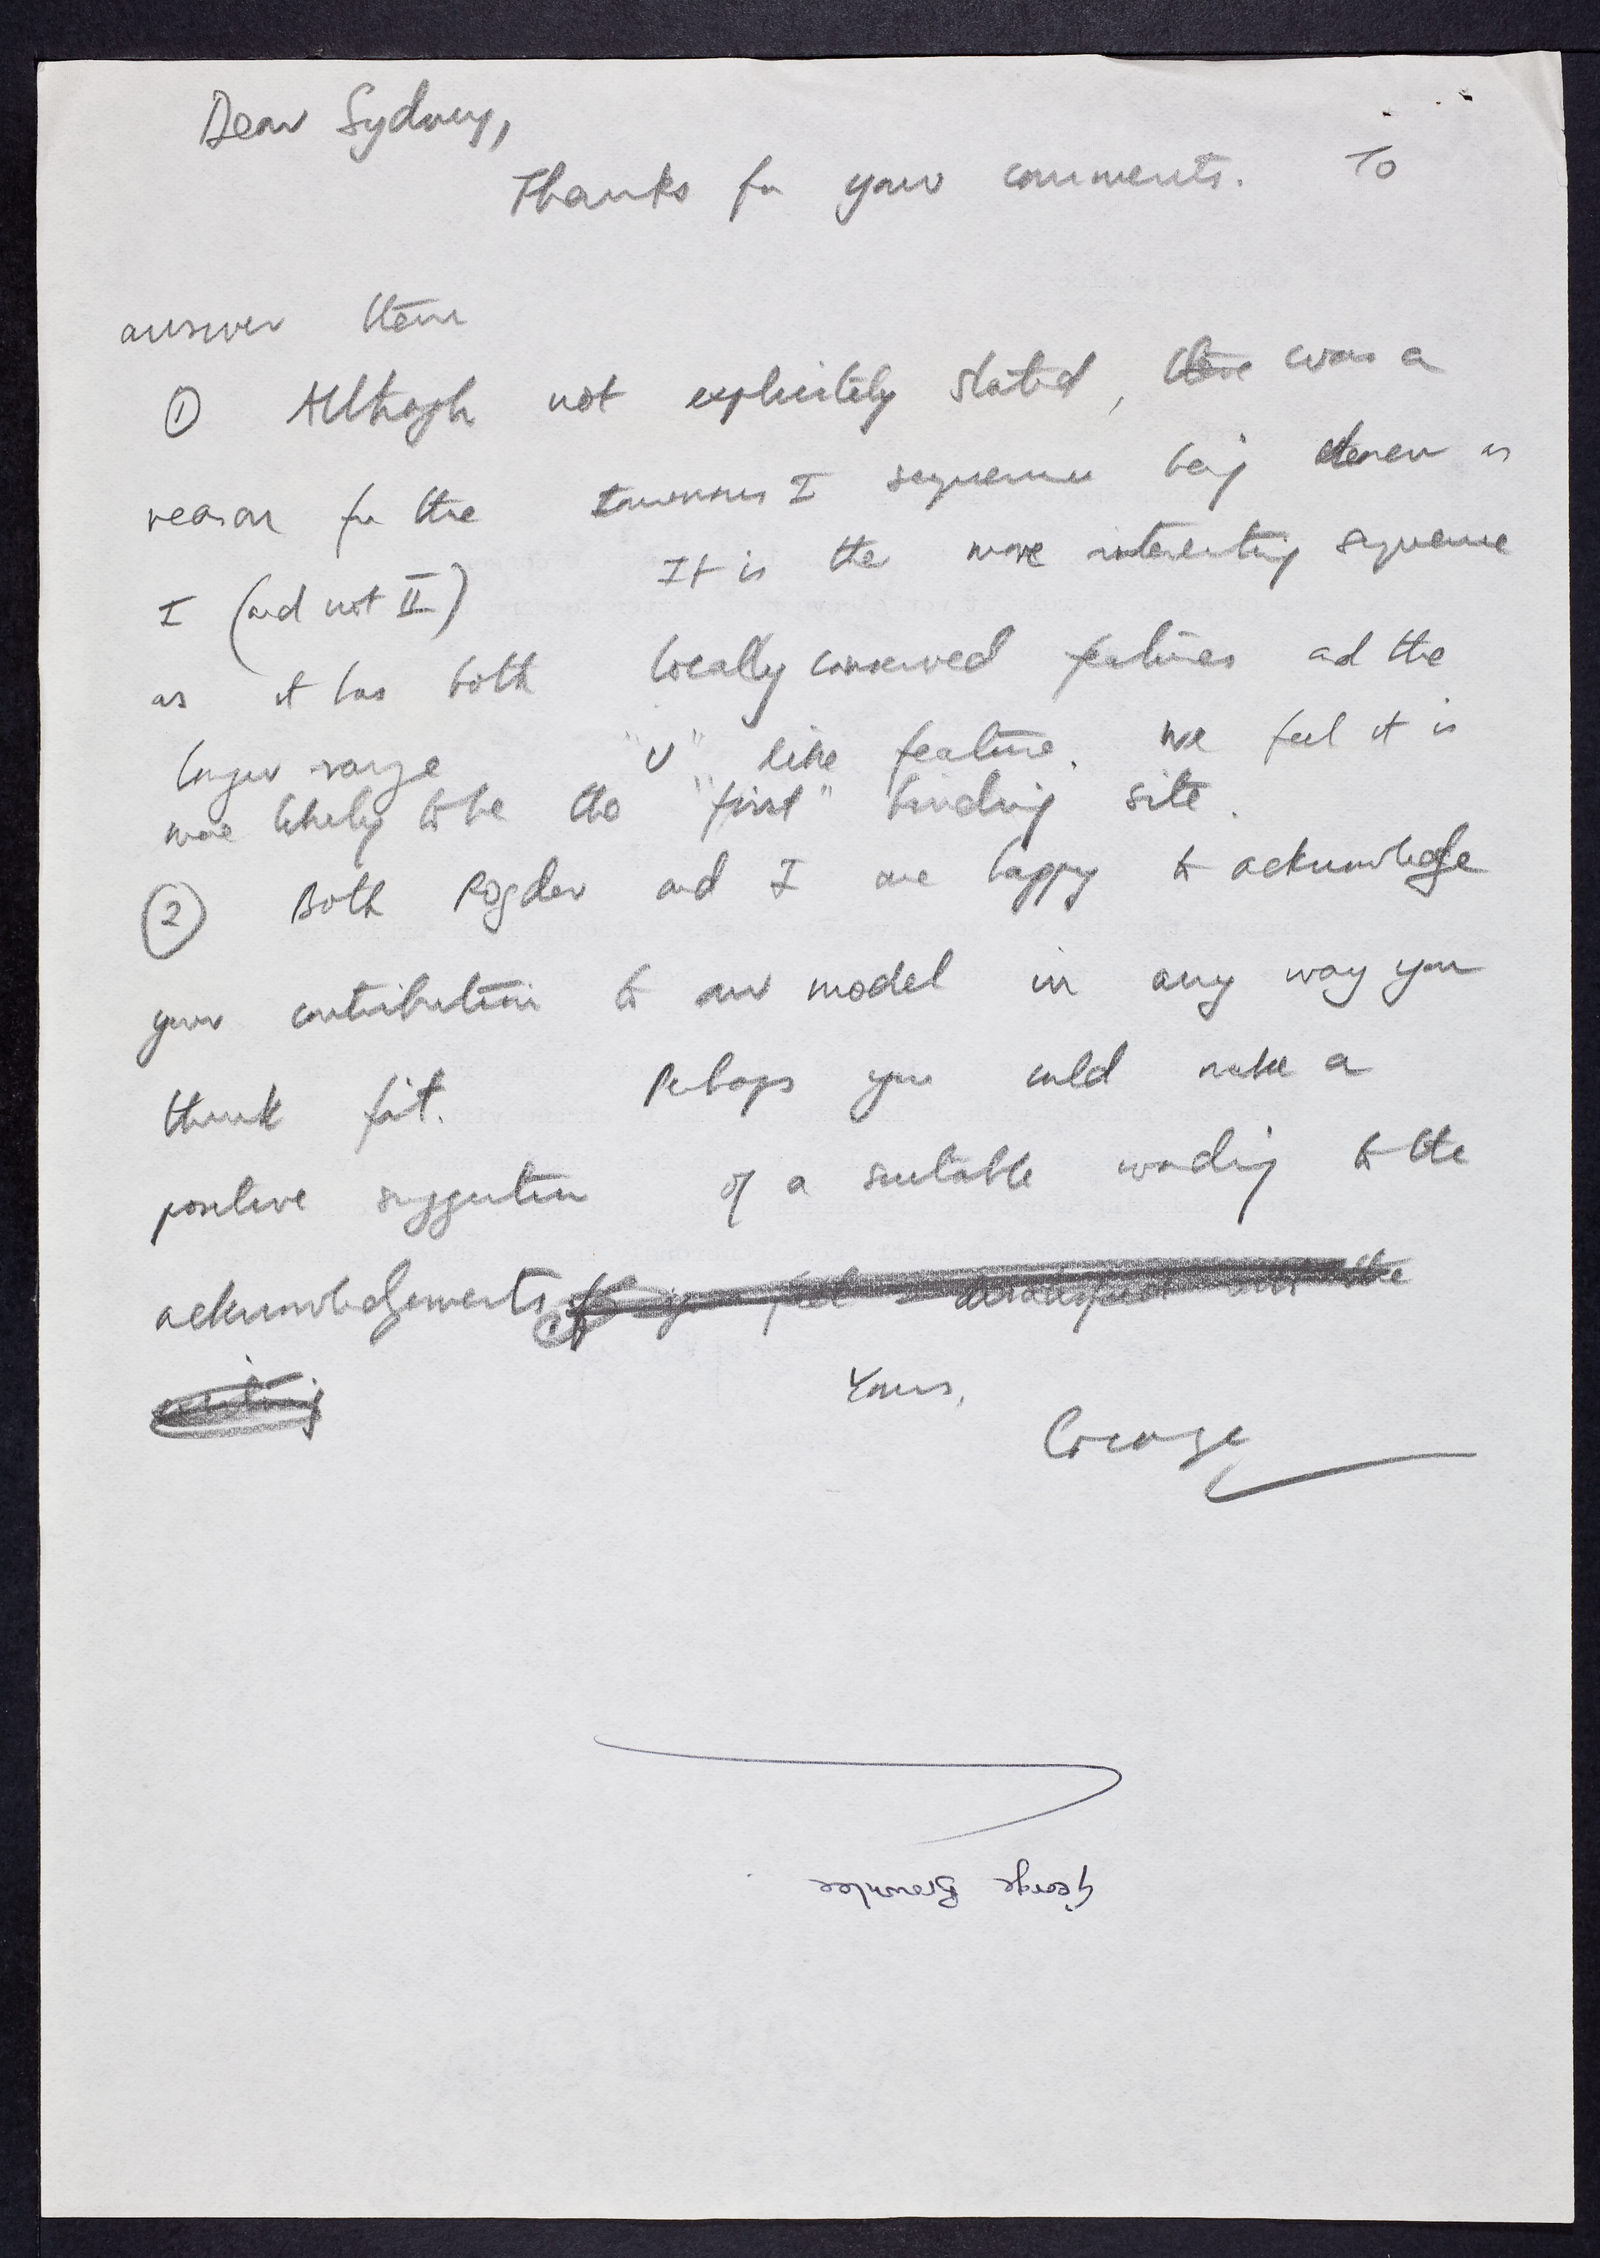 Dear Sydney,
Thanks for your comments. To
answer them
① Although not explicitely stated, there was a
reason for the I sequence being chosen as
I (and not II) It is the more interesting sequence
as it has both locally conserved features and the
longer range "U" like feature. We feel it is
more likely to be the "first" binding site.
② Both Rogder and I are happy to acknowledge
your contribution to our model in any way you
think fit. Perhaps you could make a
positive suggestion of a suitable wording to the
acknowledgements if you feel dissatisfied with the
Yours,
George
George Brownlee